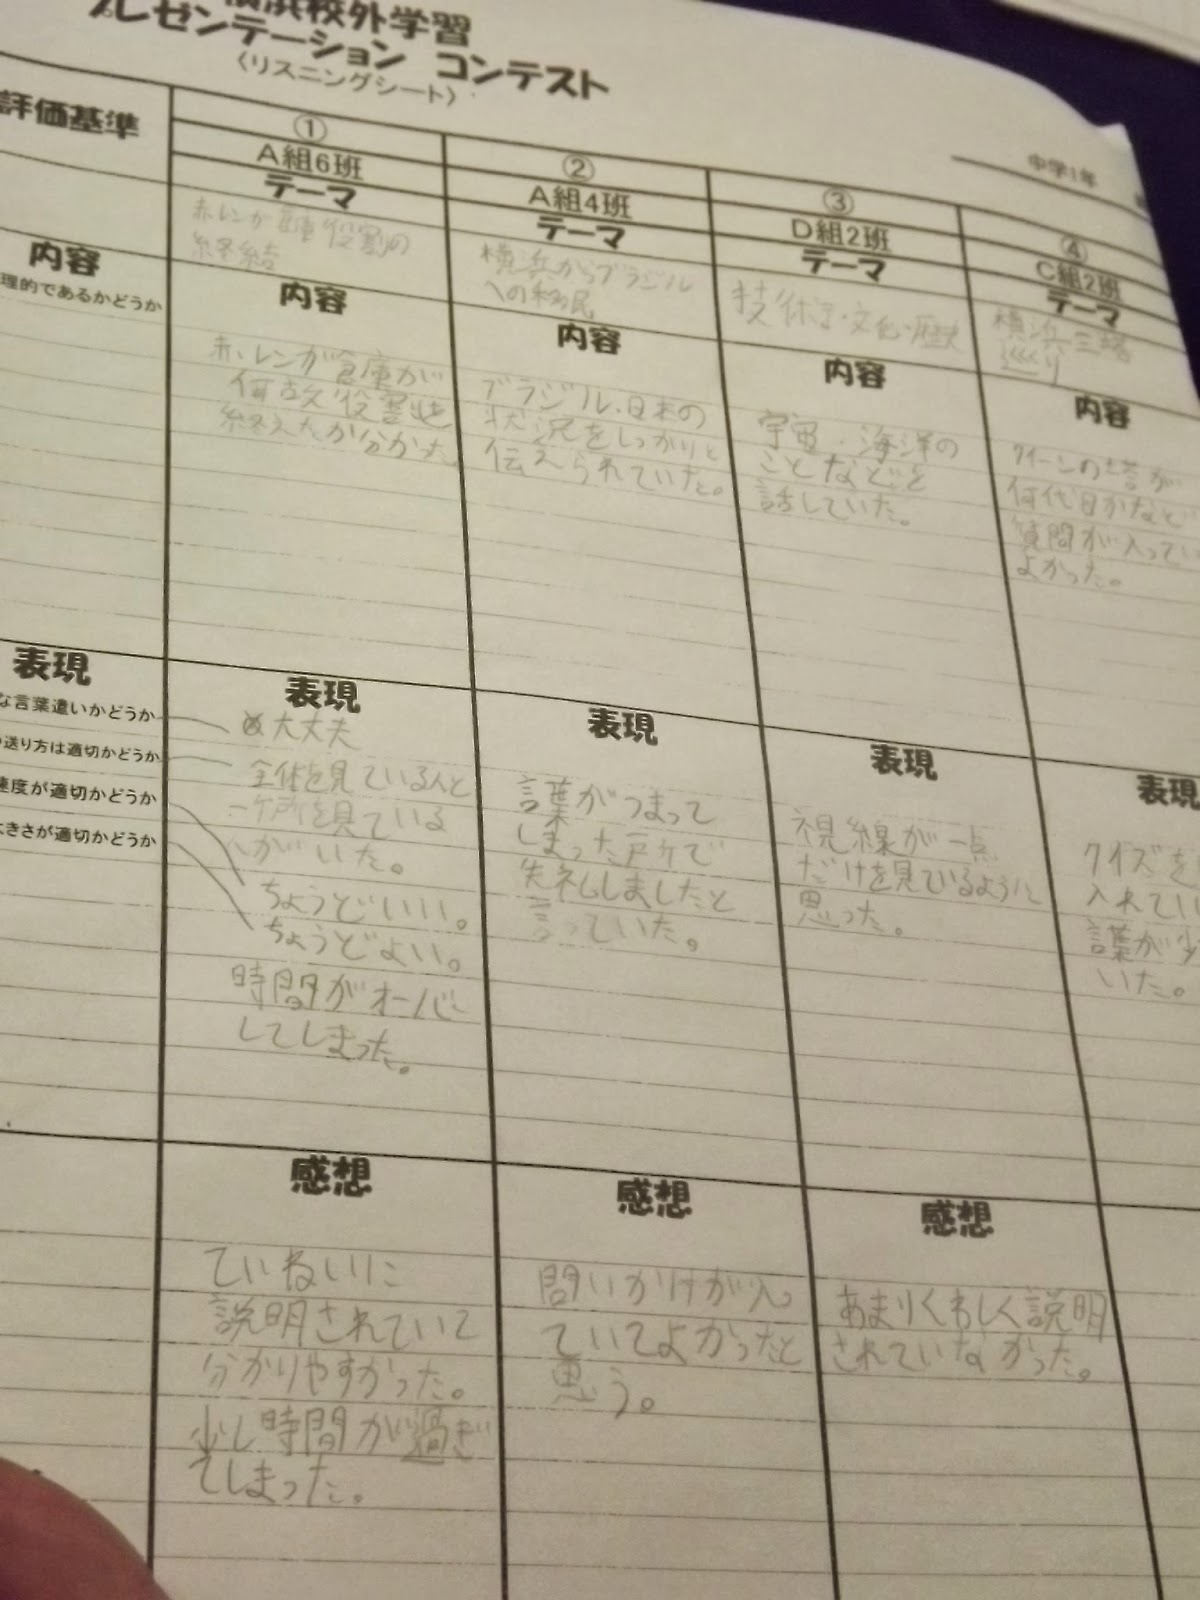 横浜校外学習
プレゼンテーション コンテスト
〈リスニングシート〉
中学1年
評価基準
①
A組6班
テーマ
赤レンガ倉庫役割の
終結
②
A組4班
テーマ
横浜からブラジル
への移民
③
D組2班
テーマ
技術・文化・歴史
④
C組2班
テーマ
横浜三塔
巡り
内容
理的であるかどうか
内容
赤レンガ倉庫が
何故役割を
終えたか分かった
内容
ブラジル、日本の
状況をしっかりと
伝えられていた。
内容
宇宙・海洋の
ことなどを
話していた。
内容
クイーンの塔が
何代目かなど
質問が入ってい
よかった。
表現
な言葉遣いかどうか
送り方は適切かどうか
速度が適切かどうか
大きさが適切かどうか
表現
大丈夫
全体を見ている人と
一ヶ所を見ている
がいた。
ちょうどいい。
ちょうどよい。
時間がオーバー
してしまった。
表現
言葉がつまって
しまった所で
失礼しましたと
言っていた。
表現
視線が一点
だけを見ているように
思った。
表現
クイズを
入れてい
言葉が少
いた。
感想
ていねいに
説明されていて
分かりやすかった。
少し時間が過ぎ
てしまった。
感想
問いかけが入っ
ていてよかったと
思う。
感想
あまりくわしく説明
されていなかった。